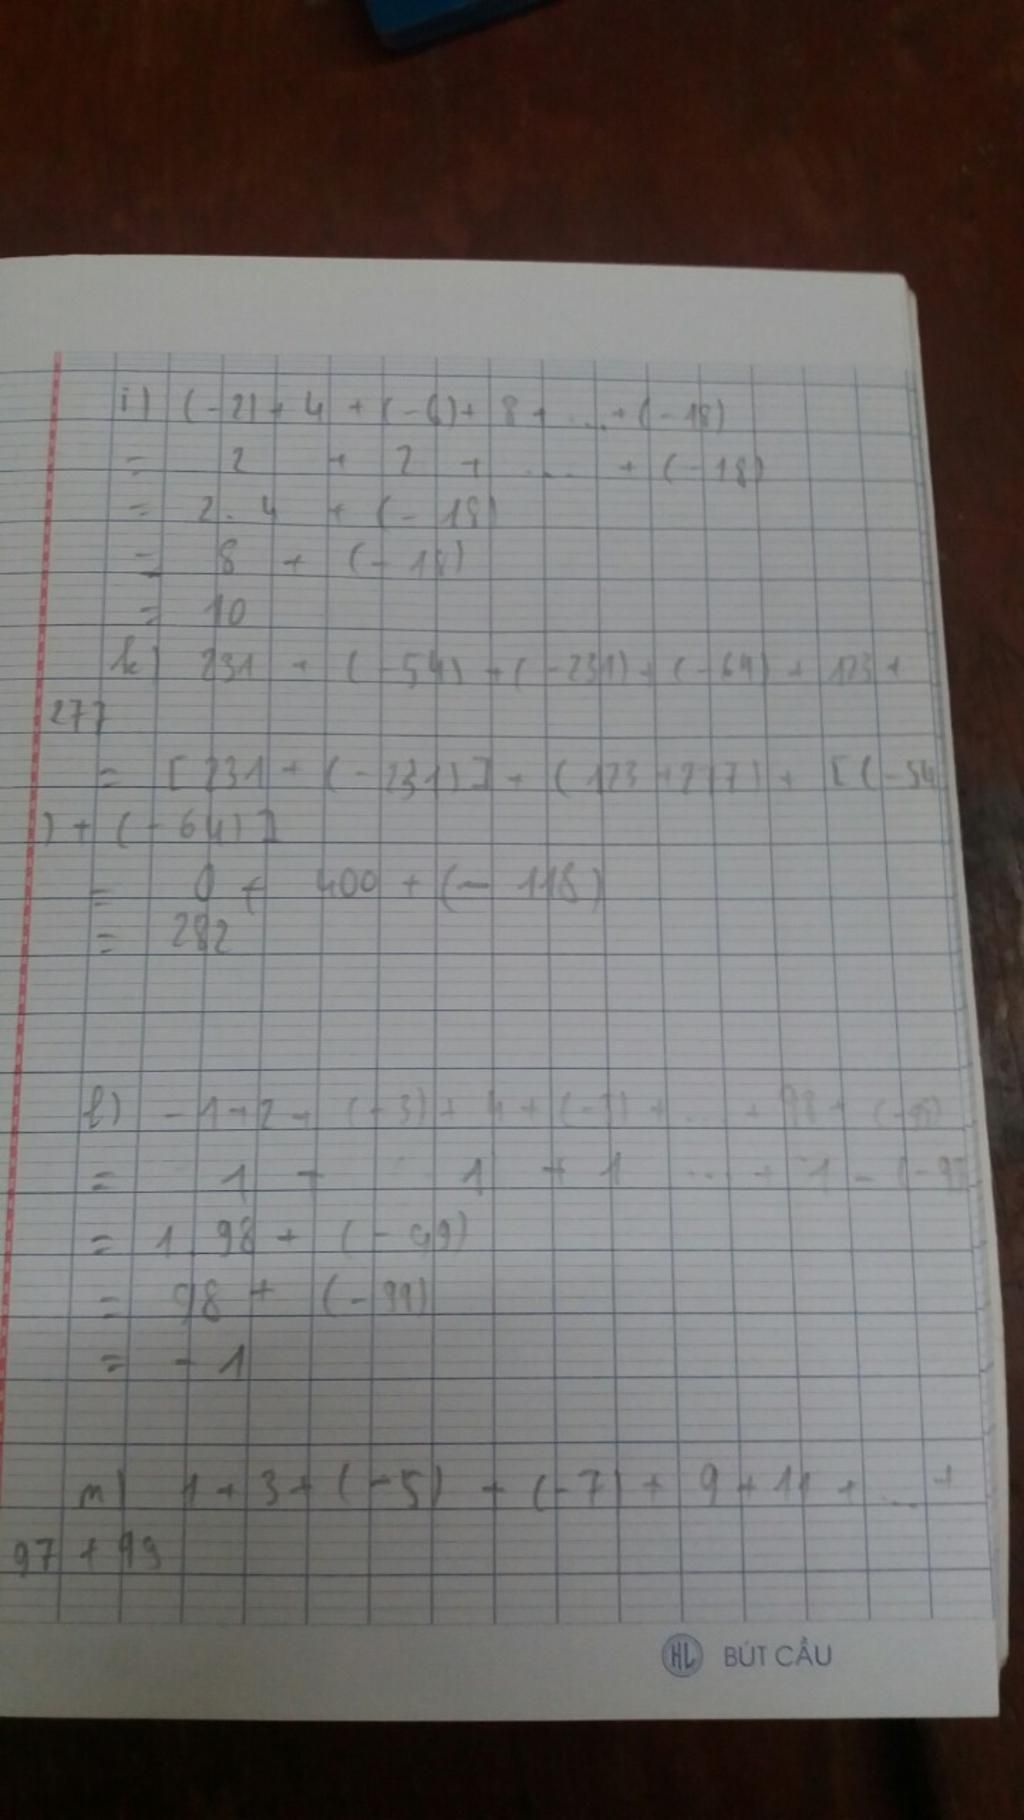 i) (-2) + 4 + (-6) + 8 + ... + (-18)
= 2 + 2 + .... + (-18)
= 2.4 + (-18)
= 8 + (-18)
= 10
k) 231 + (-54) + (-231) + (-64) + 123 +
277
= [231 + (-231)] + (123 + 277) + [(-54
) + (-64)]
= 0 + 400 + (-118)
= 282
l) -1 + 2 + (-3) + 4 + (-5) + ... + 98 + (-99)
= 1 + 1 + 1 ... + 1 - (-99
= 1.98 + (-99)
= 98 + (-99)
= -1
m) 1 + 3 + (-5) + (-7) + 9 + 11 + ... +
97 + 99
HL BÚT CẦU